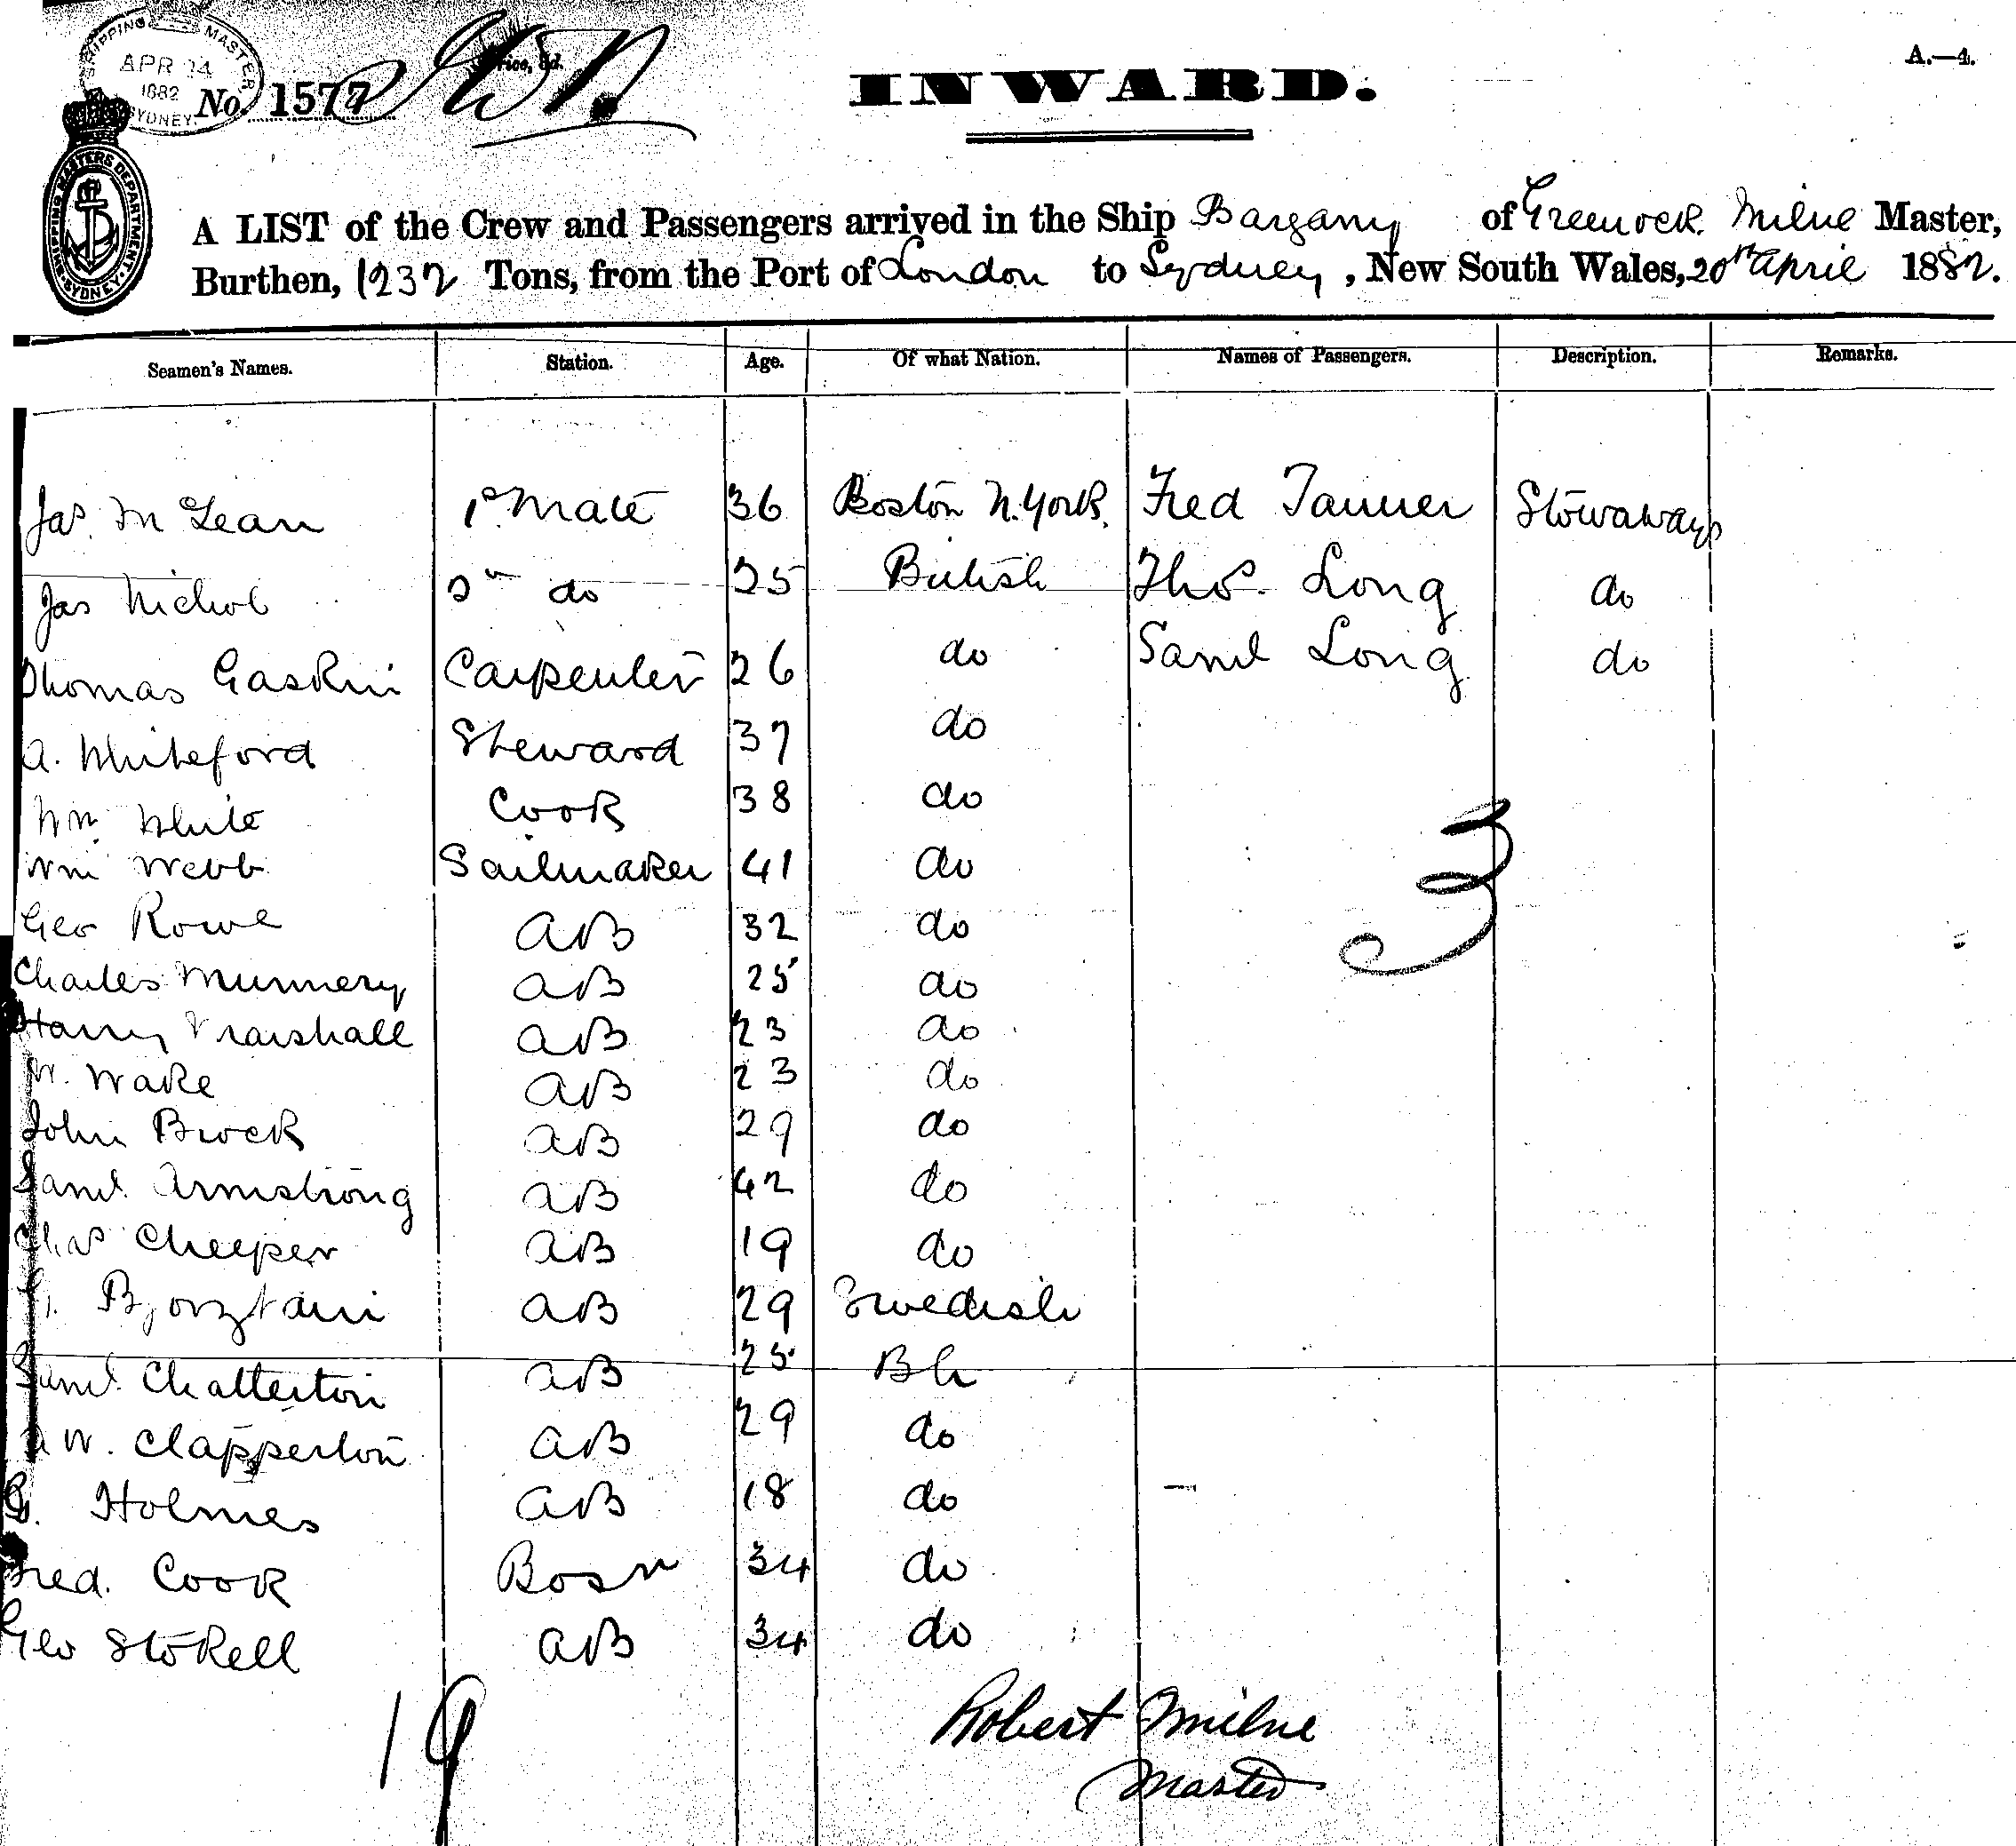 SHIPPING MASTER
APR 24
1882
SYDNEY.
No. 1577
Price, 3d.
INWARD.
A.—4.
SHIPPING MASTERS DEPARTMENT. SYDNEY
A LIST of the Crew and Passengers arrived in the Ship Bargany of Greenock Milne Master,
Burthen, 1232 Tons, from the Port of London to Sydney, New South Wales, 20th April 1882.
Seamen's Names. Station. Age. Of what Nation. Names of Passengers. Description. Remarks.
Jas. McLean 1st Mate 36 Boston N. York. Fred Tanner Stowaways
Jas Nichol 2n do 25 British Thos. Long do
Thomas Gaskin Carpenter 26 do Saml Long do
A. Whiteford Steward 37 do
Wm. White Cook 38 do
Wm Webb Sailmaker 41 do
Geo Rowe AB 32 do
Charles Munnery AB 25 do
Harry Marshall AB 23 do
W. Wake AB 23 do
John Brock AB 29 do
Saml. Armstrong AB 42 do
Chas Cheeper AB 19 do
AB 29 Swedish
Saml. Chatterton AB 25 Bh
W. Clapperton AB 29 do
G. Holmes AB 18 do
Fred. Cook Bosn 34 do
Geo Stokell AB 34 do
3
19
Robert Milne
Master